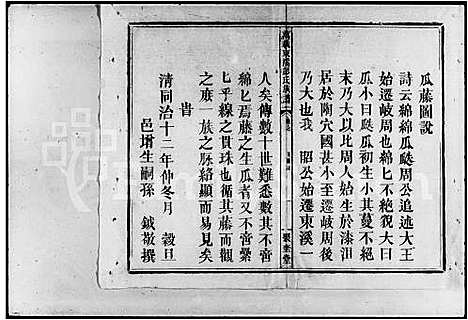 瓜藤圖說
詩云綿綿瓜瓞周公追述大王
始遷岐周之綿匕不絕貌大曰
瓜小曰瓞瓜初生小其蔓不絕
末乃大以比周人始生於漆沮
居於陶穴國甚小至遷岐周後
乃大也我 昭公始遷東溪一
人矣傳數十世難悉數其不啻
綿匕焉藤之生瓜者又不啻纍
匕乎線之貫珠也循其藤而觀
之庶一族之脈絡顯而易見矣
旹
清同治十二年仲冬月 穀旦
邑堉生嗣孫 鉞敬撰